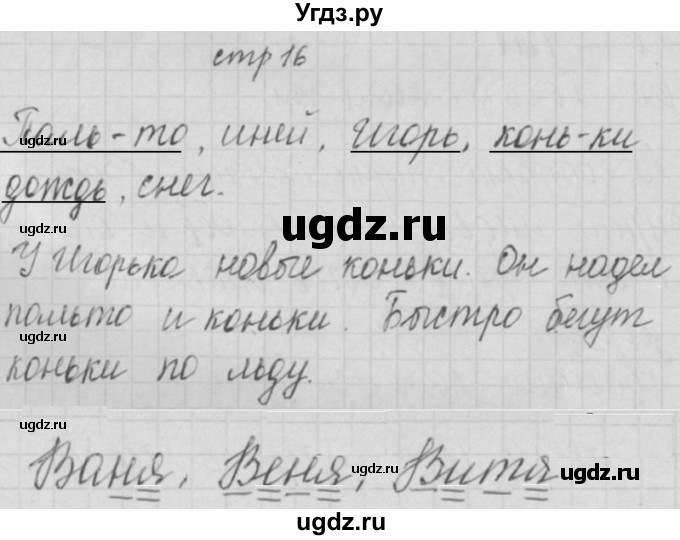 Угдз.ру
стр 16
Паль-то, иней, Игорь, конь-ки
дождь, снег.
У Игорька новые коньки. Он надел
пальто и коньки. Быстро бегут
коньки по льду.
Ваня, Веня, Витя
ugdz.ru
ugdz.ru
ugdz.ru
ugdz.ru
ugdz.ru
ugdz.ru
ugdz.ru
ugdz.ru
ugdz.ru
ugdz.ru